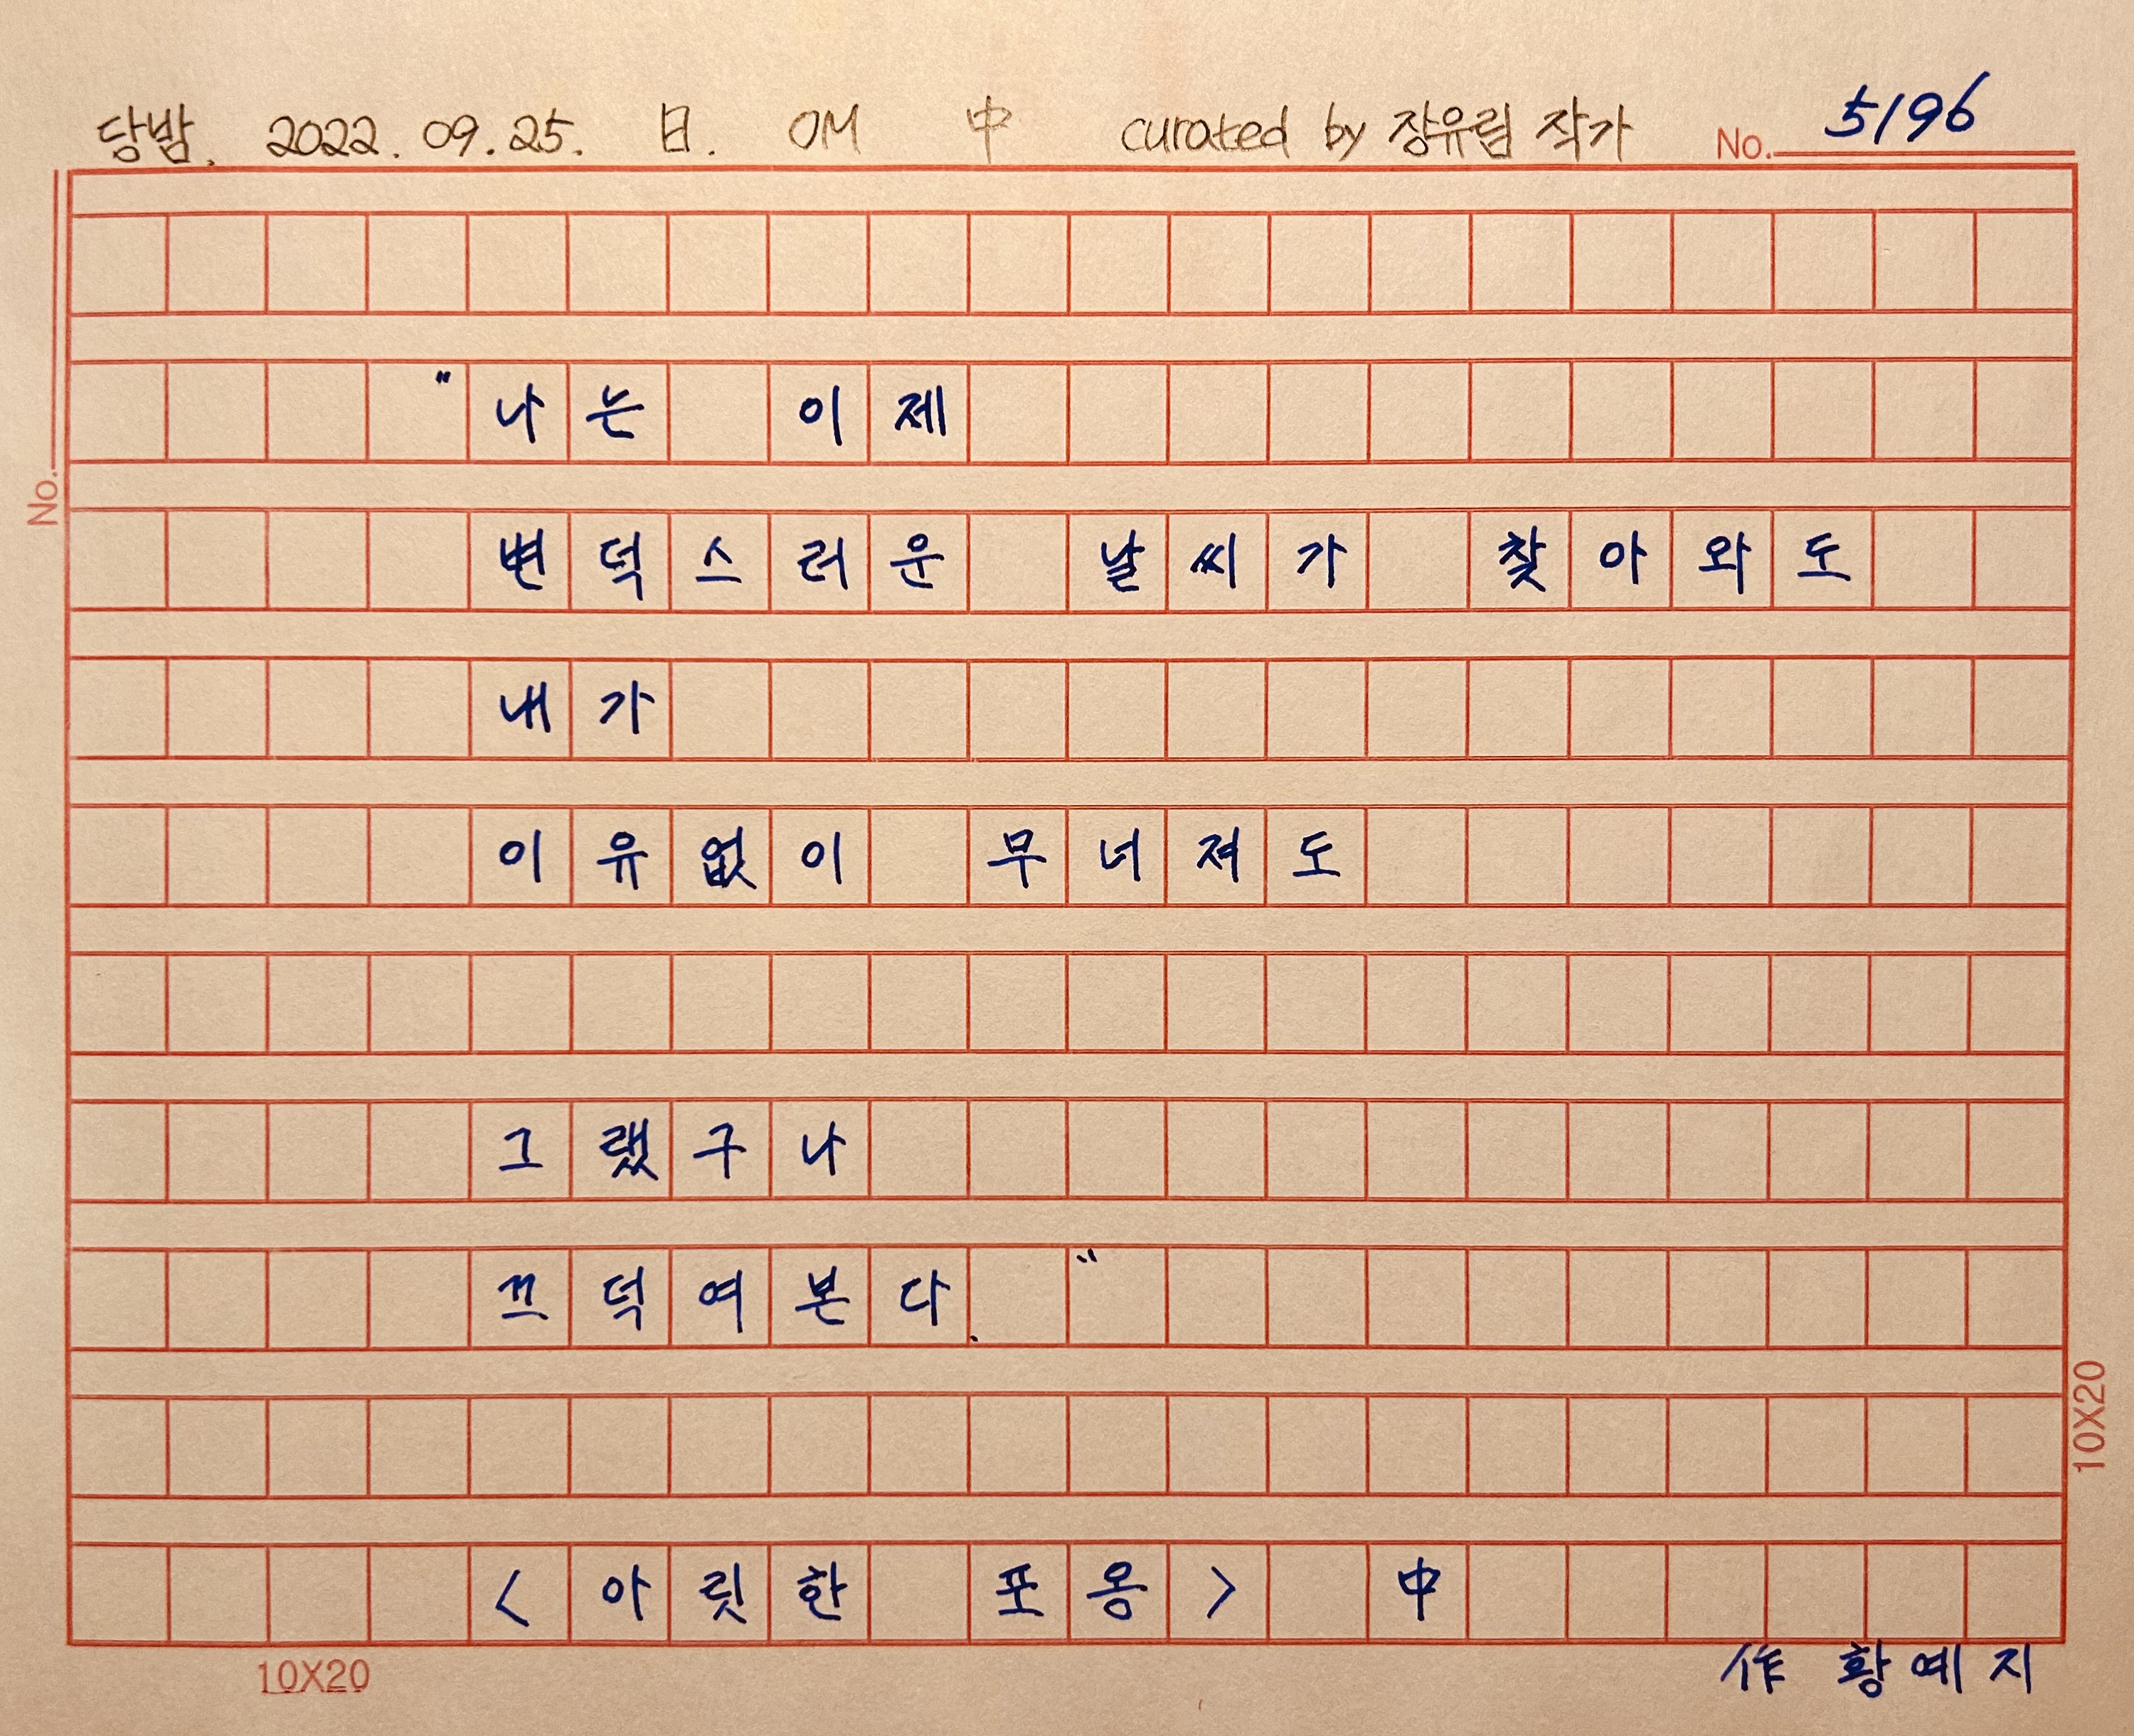 당밤. 2022. 09. 25. 日. OM 中 curated by 장유림 작가 No. 5196
No.
"나는 이제
변덕스러운 날씨가 찾아와도
내가
이유없이 무너져도
그랬구나
끄덕여본다."
<아릿한 포옹> 中
10X20
作 황예지
10X20